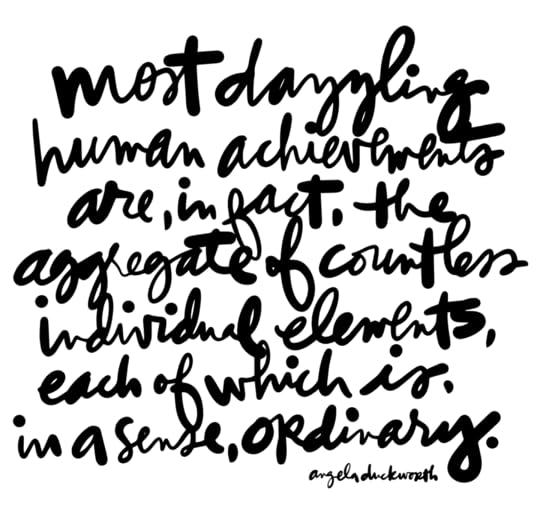 most dazzling
human achievements
are, in fact, the
aggregate of countless
individual elements,
each of which is,
in a sense, ordinary.
angela duckworth